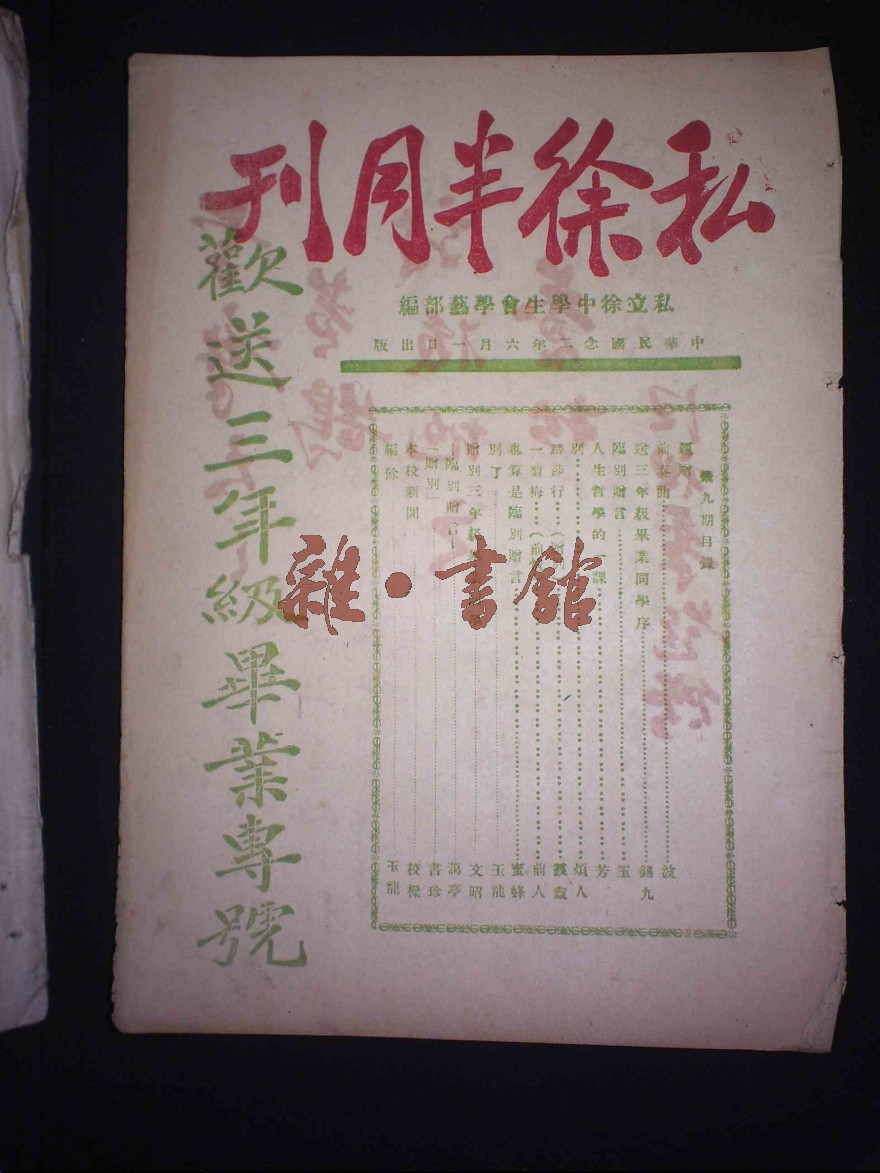 私徐半月刊
私立徐中學生會學藝部編
中華民國念二年六月一日出版
第九期目錄
前奏曲 波
送三年級畢業同學序 錫九
臨別贈言 玉
人生哲學的一課 芳
別 煩人
踏莎行
一剪梅 前人
也算是臨別贈言 蜜蜂
別了 玉龍
贈別三年級 文昭
臨別贈言 藹亭
「贈別」 書珍
本校新聞 校櫟
編餘 玉龍
歡送三年級畢業專號
雜·書館